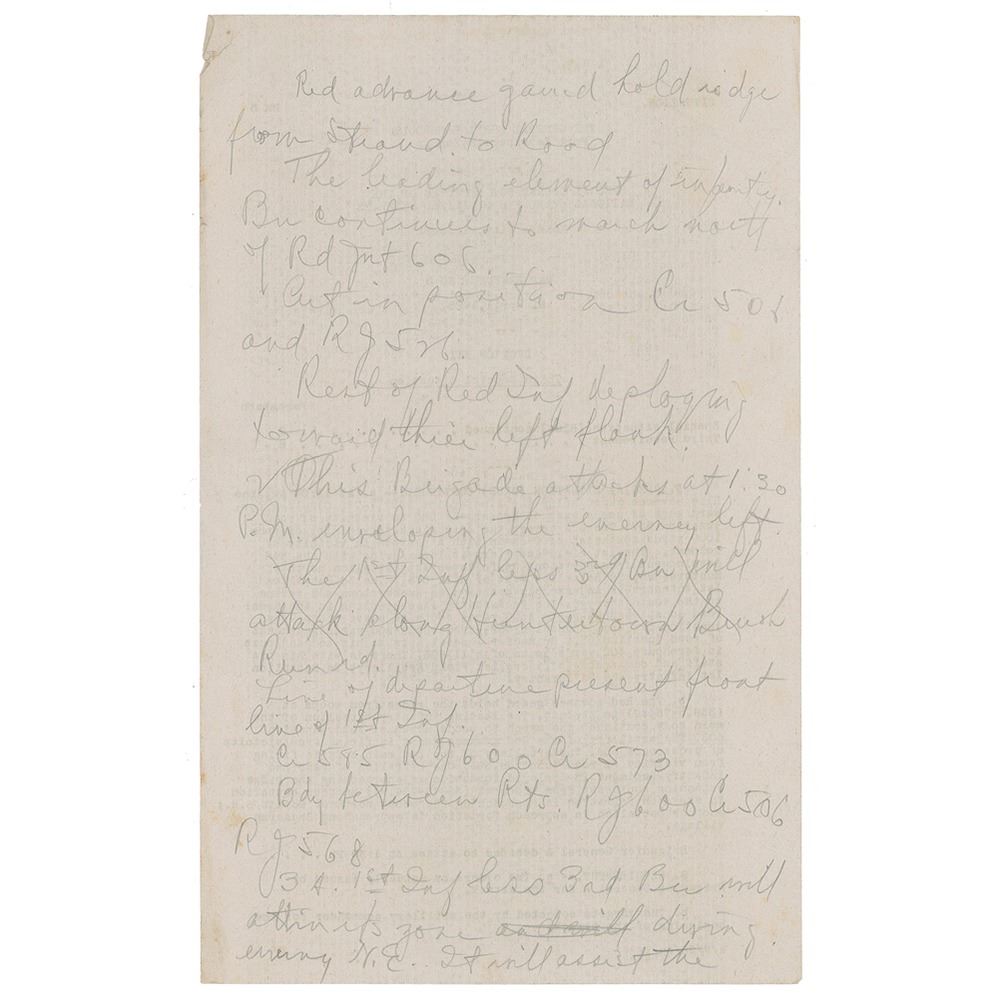 Red advance gaurd hold ridge
from Strand to Road
The leading element of infantry
Bn continues to march north
of Rd Jnt 606.
Art in position Cr 501
and R J 526.
Rest of Red Inf deploying
toward thier left flank.
2 This Brigade attacks at 1:30
P.M. enveloping the enemey left.
The 1st Inf less 3rd Bn will
attack along Huntertown Brush
Run rd.
Line of departure present front
line of 1st Inf.
Cr 585 R J 600 Cr 573
Bdy between Rts. R J 600 Cr 506
R J 568
3 A. 1st Inf less 3rd Bn will
att in its zone and will driving
enemy N.E. It will assist the